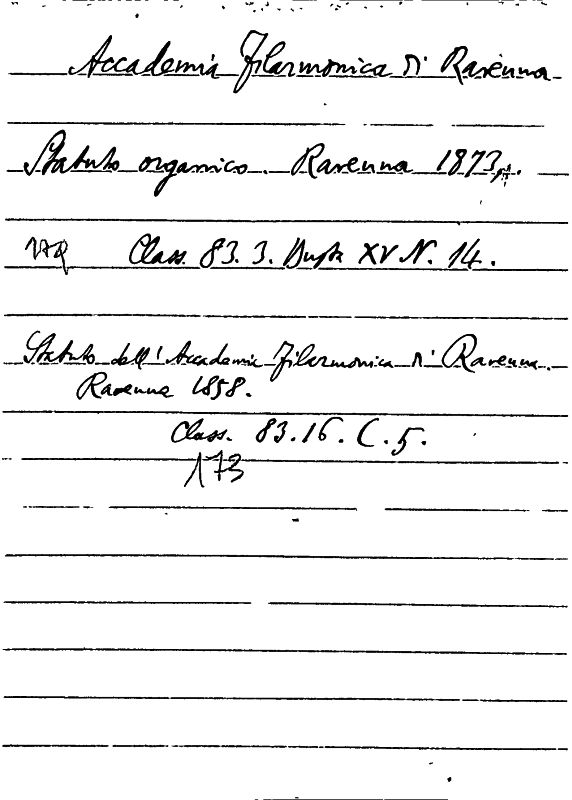 Accademia Filarmonica di Ravenna
Statuto organico. Ravenna 1873,
Class. 83. 3. Busta XV N. 14.
Statuto dell'Accademia Filarmonica di Ravenna.
Ravenna 1858.
Class. 83.16. C.5.
173